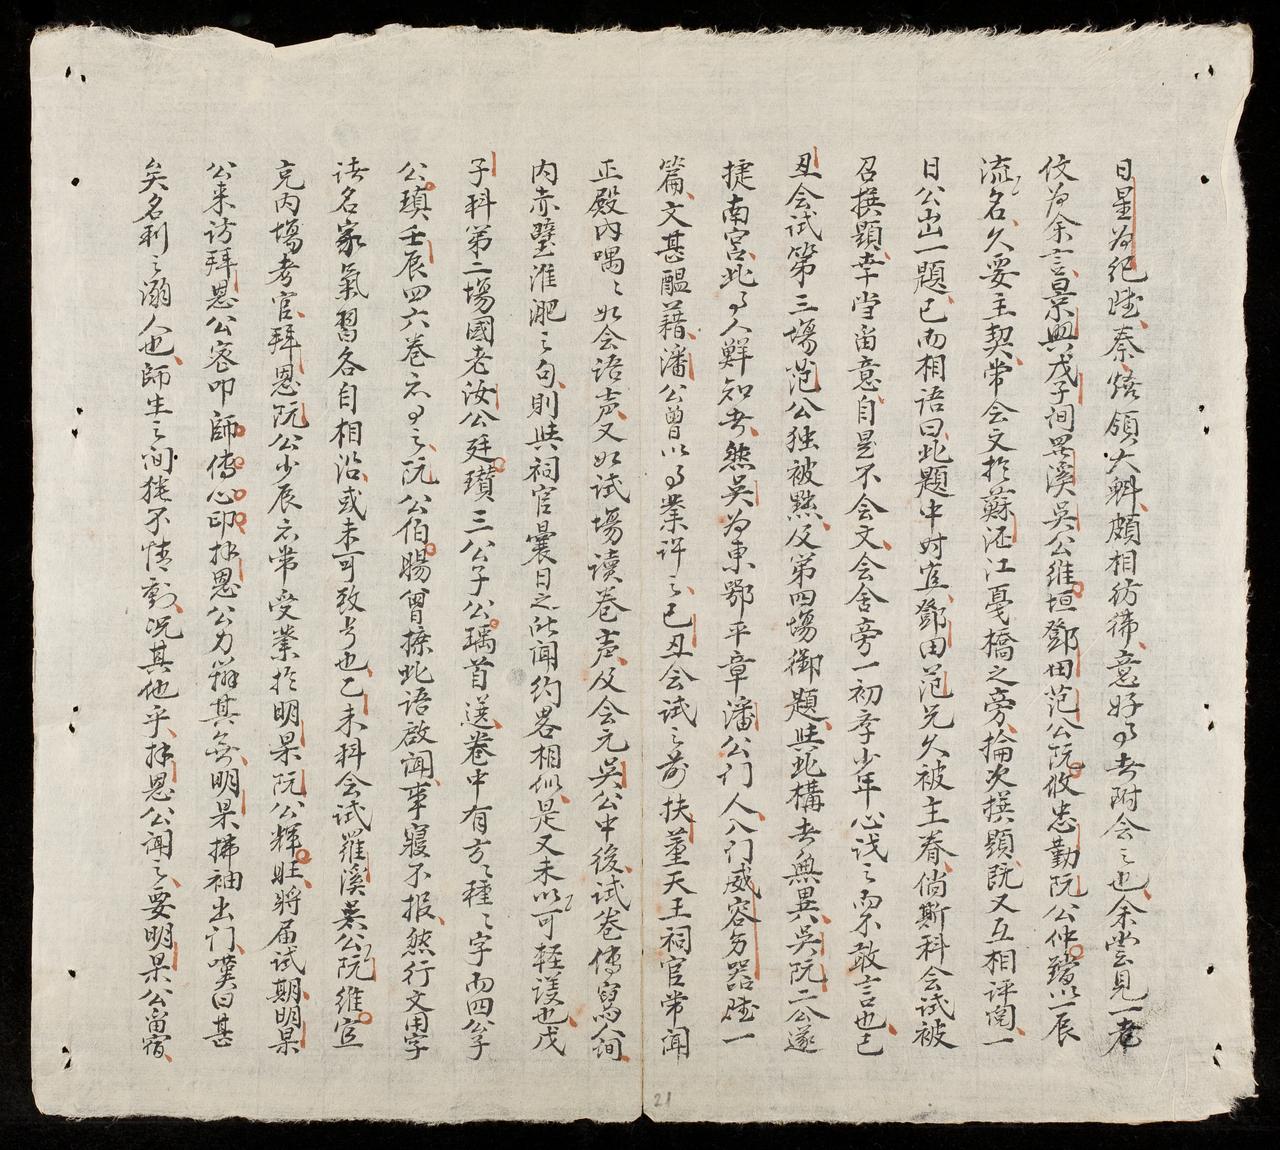 日星为纪陛秦焙領大魁頗相彷彿意好事者附会之也余嘗見一老
仗为余言景興戊子间罢溪吳公維垣鄧田范公阮攸忠勤阮公仲璒以一辰
流名久要主契常会文於蘇江憂橋之旁掄次撰題既又互相評閱一
日公出一題已而相语曰此題中对宜鄧田范兄久被主眷倘斯科会試被
召撰題幸当畄意自是不会文会舍旁一初孝少年心识之而不敢言也已
丑会試第三塲范公独被黙及第四塲御題與此構者無異吳阮二公遂
捷南宮此事人鮮知者然吳为東鄂平章潘公门人入门威容多器陛一
篇文甚醞藉潘公曾以事業许之已丑会試之前扶董天王祠官常闻
正殿内喁〻如会语声又如試塲读巻声及会元吳公中後試巻傳寫人间
内赤壁淮淝之句則與祠官曩日之所闻约畧相似是又未以可輕诶也戊
子科第二塲國老汝公廷瓚三公子公瑀首送巻中有方〻種〻字而四公子
公瑱壬辰四六巻亦事之阮公伯暘曾㨿此语啟闻事寢不报然行文用字
读名家氣習各自相沿或未可致考也乙未科会試羅溪吳公阮維宜
充内塲考官拜恩阮公少辰亦常受業於明杲阮公輝旺將届試期明杲
公来访拜恩公密叩師傳心印拜恩公力辨其無明杲拂袖出门嘆曰甚
矣名利之溺人也師生之间猶不情歎况其他乎拜恩公闻之要明杲公畄宿
21